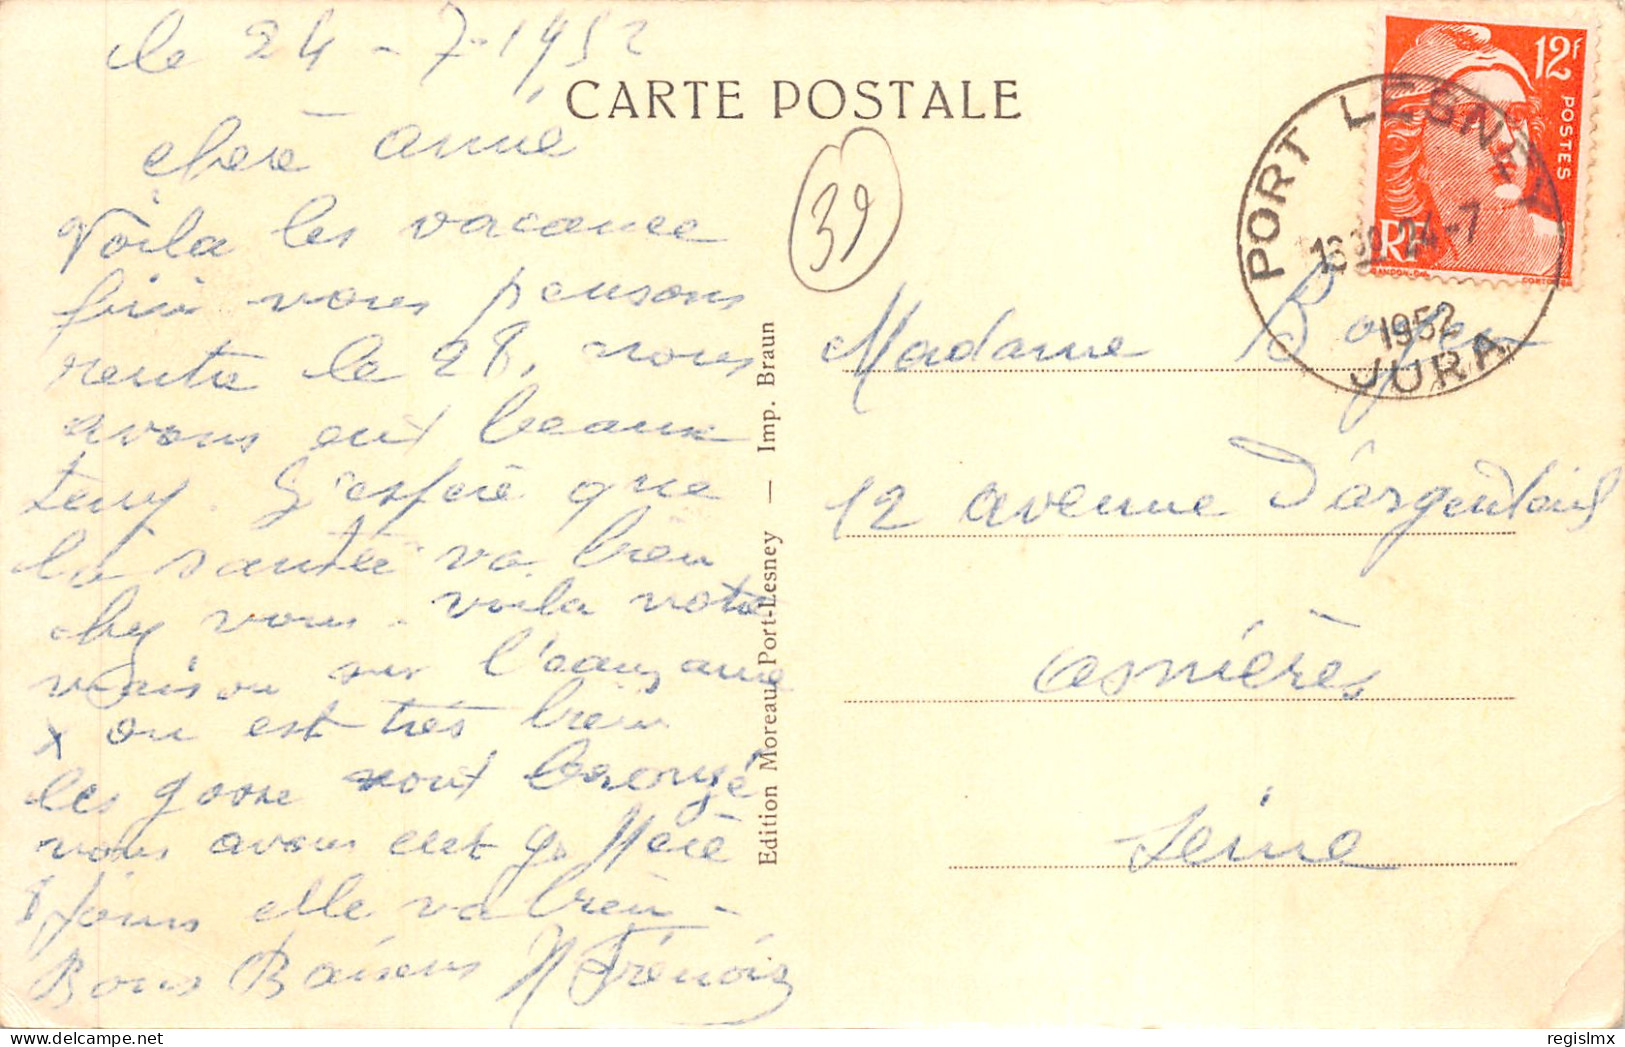 le 24-7-1952
CARTE POSTALE
chere anné
Voila les vacance
fini nous pensons
rentre le 28, nous
avons eut beaux
temp. J'espere que
la santée va bien
chez vous. voila notre
maison sur l'eau, ame
x ou est très bien
les gosse sont bronzé
nous avons eut g. Mere
8 jours elle va bien -
Bons Baisers
39
Edition Moreau Port-Lesney — Imp. Braun
12f
POSTES
RF
GANDON-DEL.
PORT LESNEY
1630 24-7
1952
JURA
Madame Boyer
12 avenue D'argenteuil
asnières
Seine
regislmx